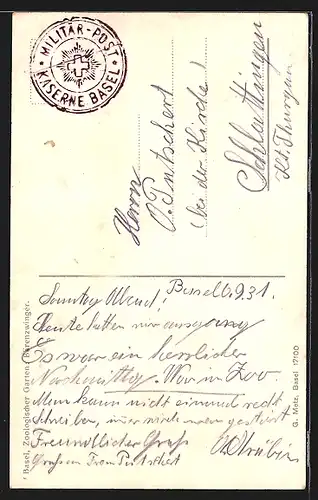 MILITÄR-POST
KASERNE BASEL
Herrn
(bei der Kirche)
Schlattingen
Kt. Thurgau
Basel, Zoologischer Garten, Bärenzwinger.
G. Metz, Basel 17100
Sonntag Abend! Basel 6.9.31.
Heute hatten wir ausgang
Es war ein herrlicher
Nachmittag. War im Zoo.
Man kann nicht einmal recht
Schreiben, immer wird man gestört
Freundlicher Gruss
Grüssen Frau